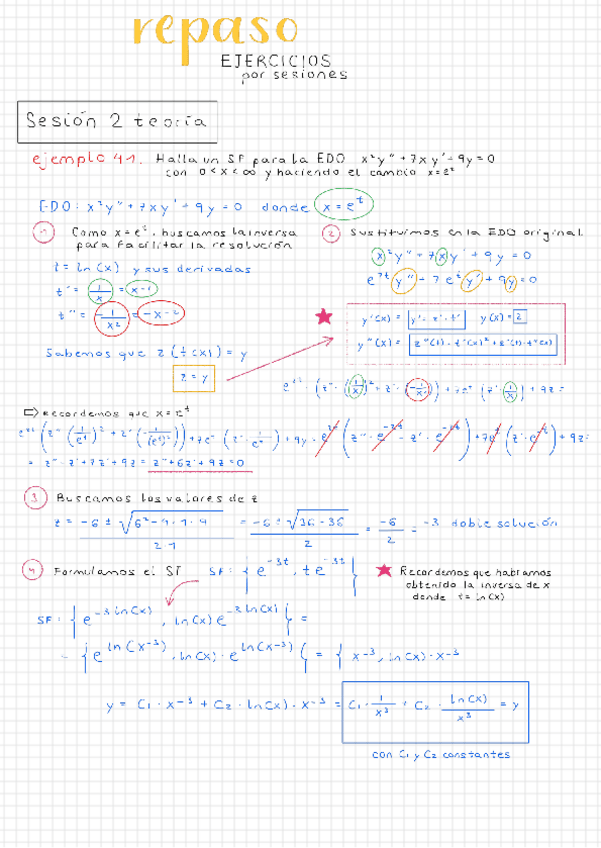 repaso
EJERCICIOS
por sesiones
Sesión 2 teoría
ejemplo 4.1. Halla un SF para la EDO x²y'' + 7xy' + 9y = 0
con 0 < x < ∞ y haciendo el cambio x = eᵗ
EDO: x²y'' + 7xy' + 9y = 0 donde x = eᵗ
1 Como x = eᵗ, buscamos la inversa
para facilitar la resolución
t = ln(x) y sus derivadas
t' = 1/x = x⁻¹
t'' = -1/x² = -x⁻²
Sabemos que z(t(x)) = y
z = y
2 Sustituimos en la EDO original
x²y'' + 7xy' + 9y = 0
e²ᵗ y'' + 7eᵗ y' + 9y = 0
y'(x) = z'·t' y(x) = z
y''(x) = z''(t)·t'(x)² + z'(t)·t''(x)
e²ᵗ · (z''·(1/x)² + z'·(-1/x²)) + 7eᵗ (z'·1/x) + 9z =
⇒ Recordemos que x = eᵗ
= z'' - z' + 7z' + 9z = z'' + 6z' + 9z = 0
3 Buscamos los valores de z
z = -6 ± √(6² - 4·1·9) / 2·1 = -6 ± √(36 - 36) / 2 = -6/2 = -3 doble solución
4 Formulamos el SF SF: { e⁻³ᵗ, t e⁻³ᵗ }
★ Recordemos que habíamos
obtenido la inversa de x
donde t = ln(x)
SF: { e^(-3 ln(x)), ln(x) e^(-3 ln(x)) } =
= { e^(ln(x⁻³)), ln(x) · e^(ln(x⁻³)) } = { x⁻³, ln(x) · x⁻³
y = C₁ · x⁻³ + C₂ · ln(x) · x⁻³ = C₁ · 1/x³ + C₂ · ln(x)/x³ = y
con C₁ y C₂ constantes